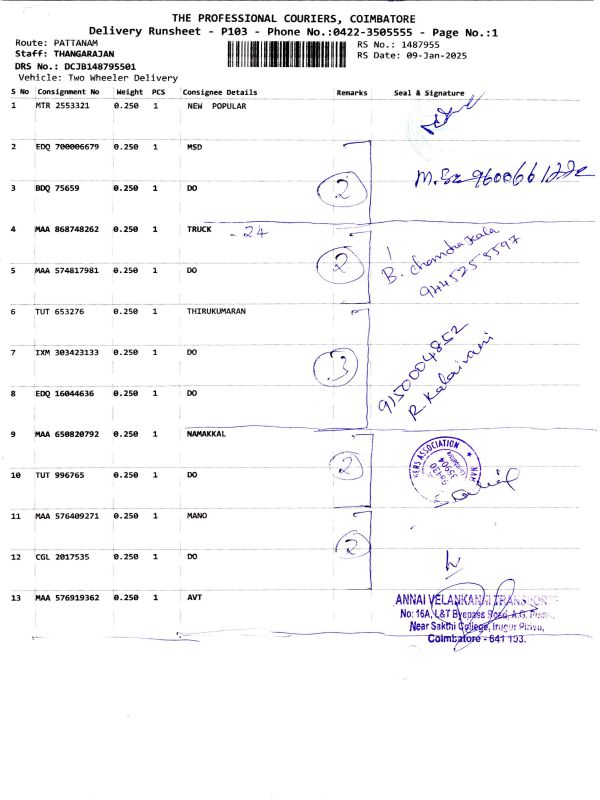 THE PROFESSIONAL COURIERS, COIMBATORE
Delivery Runsheet - P103 - Phone No.:0422-3505555 - Page No.:1
Route: PATTANAM
Staff: THANGARAJAN
DRS No.: DCJB148795501
Vehicle: Two Wheeler Delivery
RS No.: 1487955
RS Date: 09-Jan-2025
S No Consignment No Weight PCS Consignee Details Remarks Seal & Signature
1 MTR 2553321 0.250 1 NEW POPULAR
2 EDQ 700006679 0.250 1 MSD
3 BDQ 75659 0.250 1 DO 2
4 MAA 868748262 0.250 1 TRUCK - 24
5 MAA 574817981 0.250 1 DO 2 B. Chandrakala
9445255597
6 TUT 653276 0.250 1 THIRUKUMARAN
7 IXM 303423133 0.250 1 DO 3 9150004852
R. Kalaivani
8 EDQ 16044636 0.250 1 DO
9 MAA 650820792 0.250 1 NAMAKKAL
10 TUT 996765 0.250 1 DO 2 ERS ASSOCIATION
11 MAA 576409271 0.250 1 MANO
12 CGL 2017535 0.250 1 DO 2
13 MAA 576919362 0.250 1 AVT
ANNAI VELANKANNI TRANSPORT
No: 16A, L&T Byepass Road, A.G.
Near Sakthi College, Irugur Pirivu,
Coimbatore - 641 103.